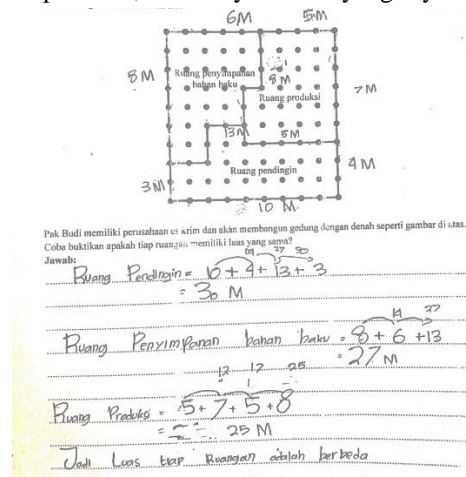 6M 5M
8M Ruang penyimpanan 8M
bahan baku
Ruang produksi 7M
13M 5M
Ruang pendingin 4M
3M
10 M
Pak Budi memiliki perusahaan es krim dan akan membangun gedung dengan denah seperti gambar di atas.
Coba buktikan apakah tiap ruangan memiliki luas yang sama?
Jawab:
14 27 30
Ruang Pendingin = 10 + 4 + 13 + 3
= 30 M
14 27
Ruang Penyimpanan bahan baku = 8 + 6 + 13
= 27 M
12 17 25
Ruang Produksi = 5 + 7 + 5 + 8
= 25 M
Jadi Luas tiap Ruangan adalah berbeda